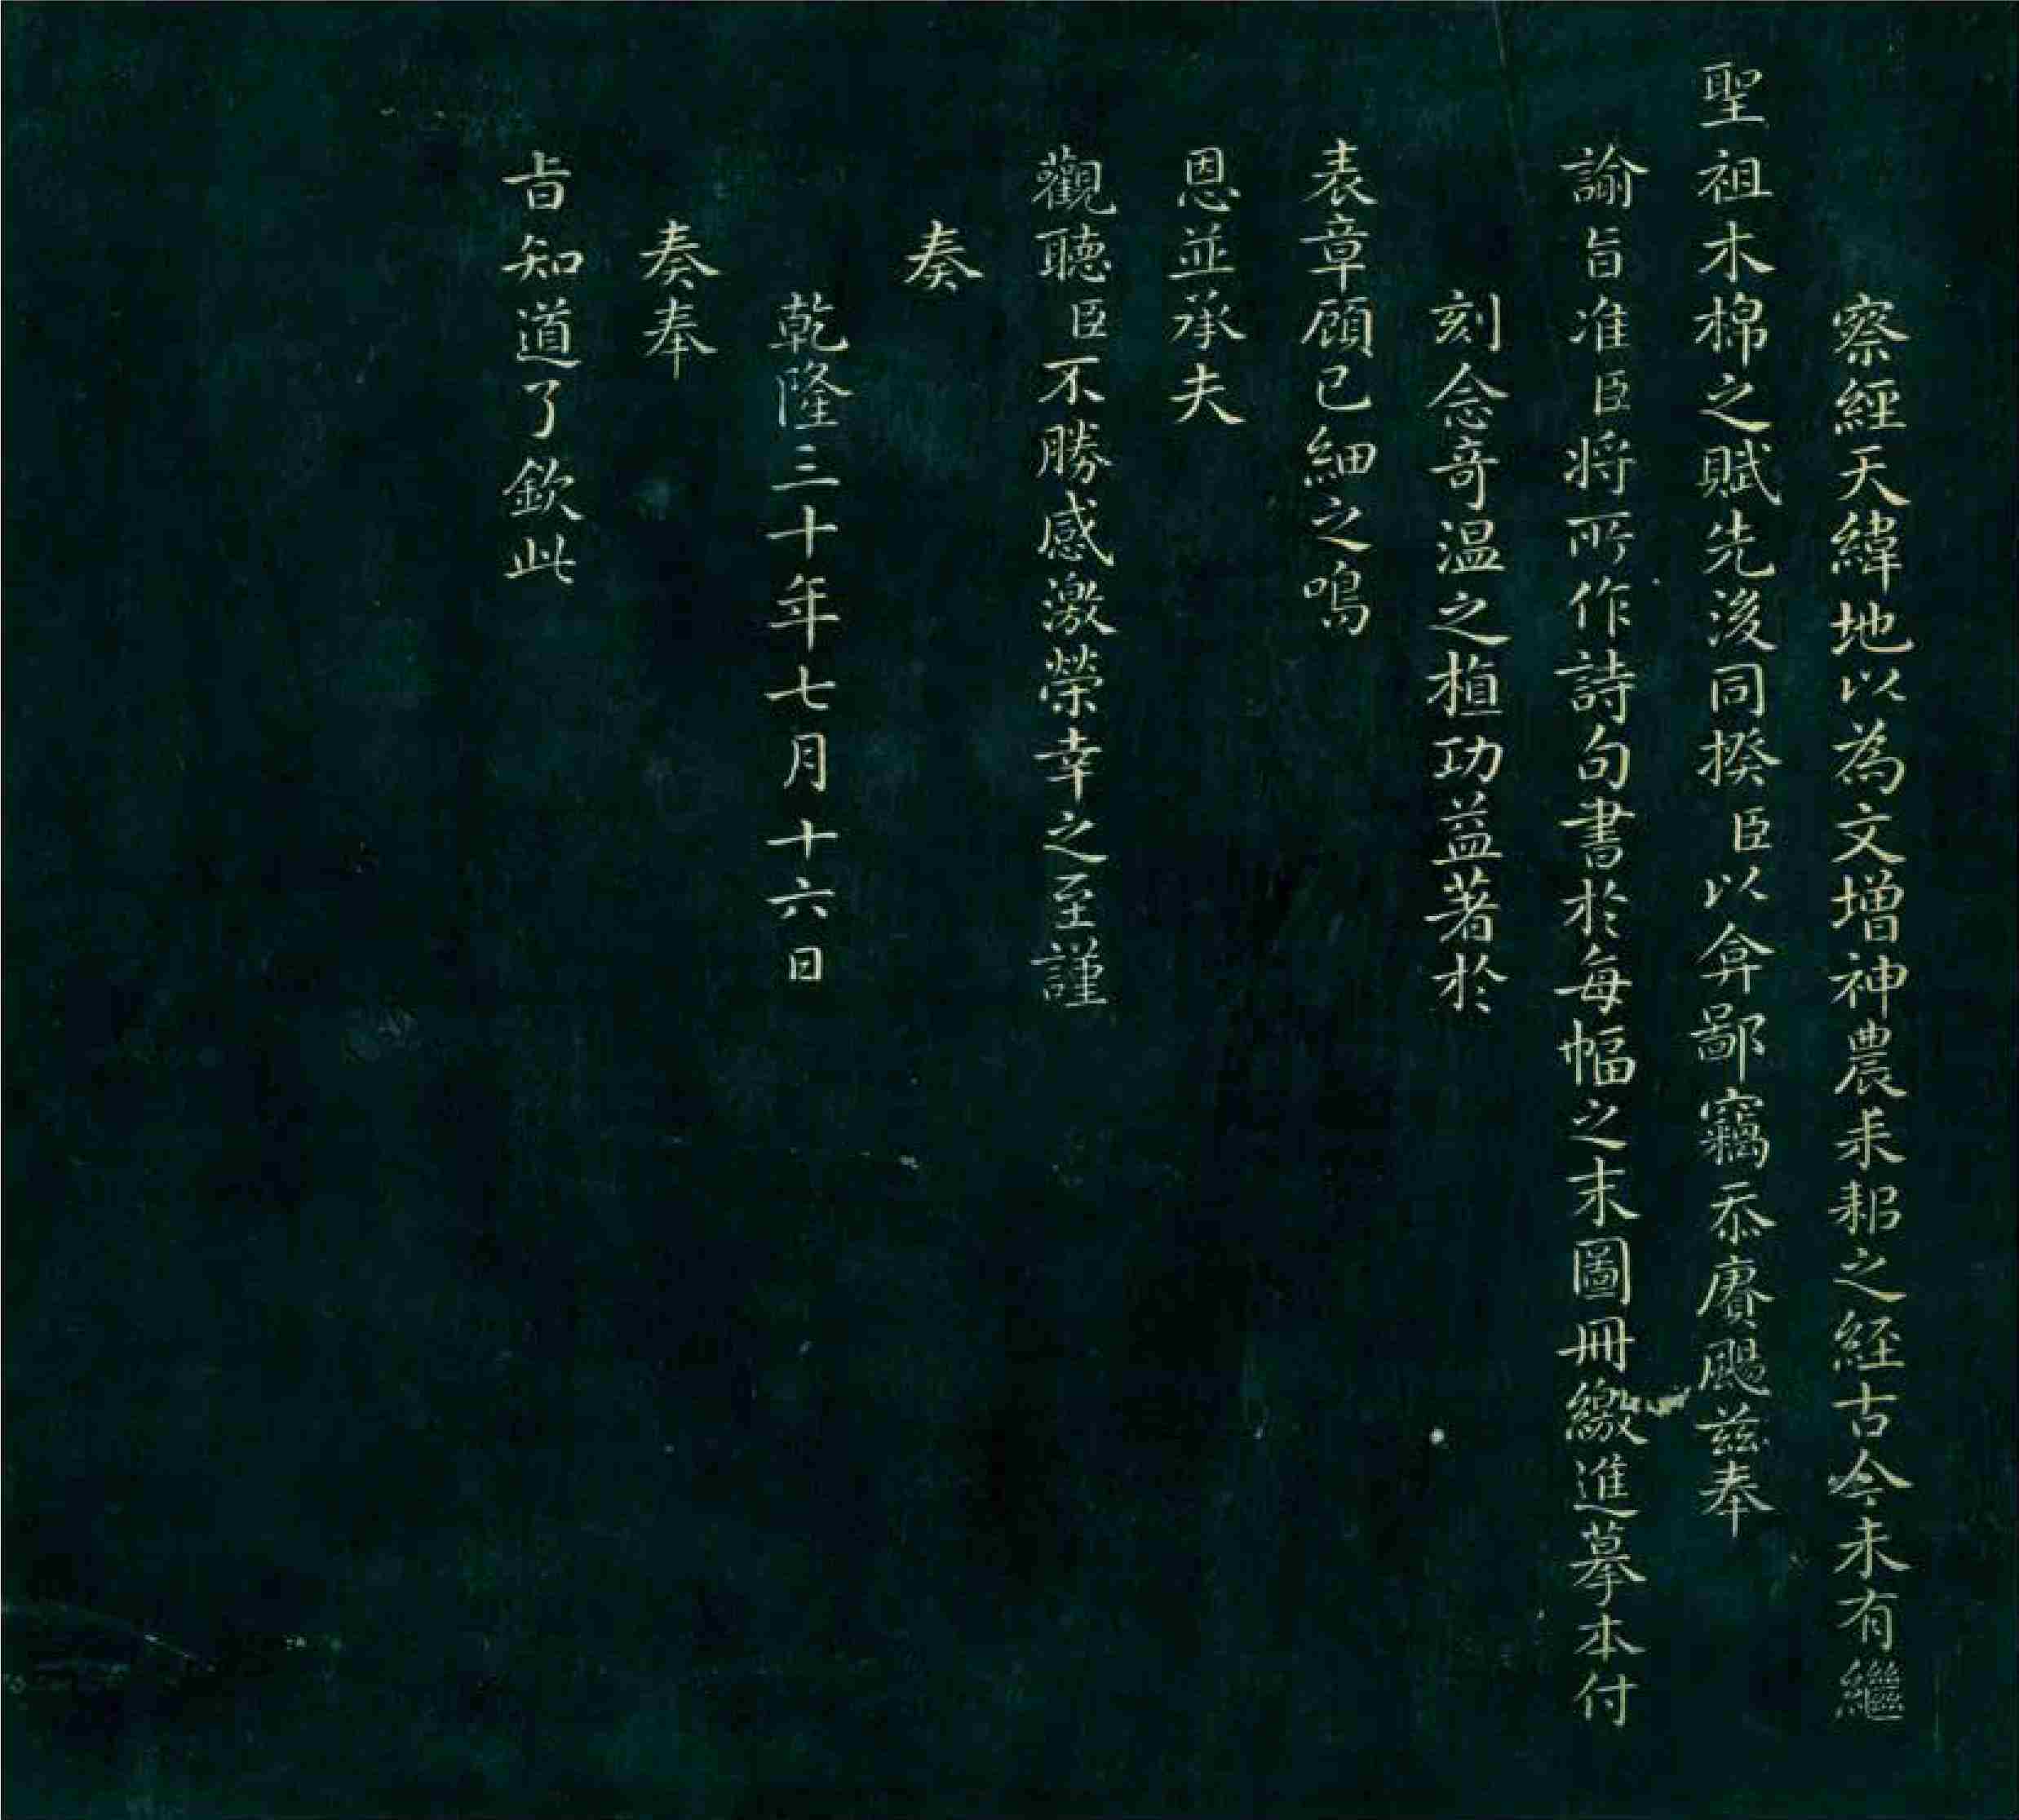 察經天緯地以為文增神農耒耜之經古今未有繼
聖祖木棉之賦先後同揆臣以弇鄙竊忝賡颺茲奉
諭旨准臣將所作詩句書於每幅之末圖冊繳進摹本付
刻念奇溫之植功益著於
表章顧已細之鳴
恩並承夫
觀聽臣不勝感激榮幸之至謹
奏
乾隆三十年七月十六日
奏奉
旨知道了欽此